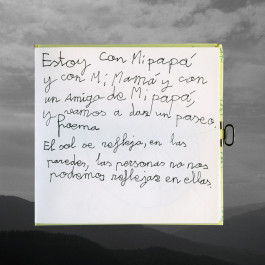 Estoy con Mi papá
y con Mi Mamá y con
un amigo de Mi papá,
y vamos a dar un paseo
Poema
El sol se refleja, en las
paredes, las personas no nos
podemos reflejar en ellas.